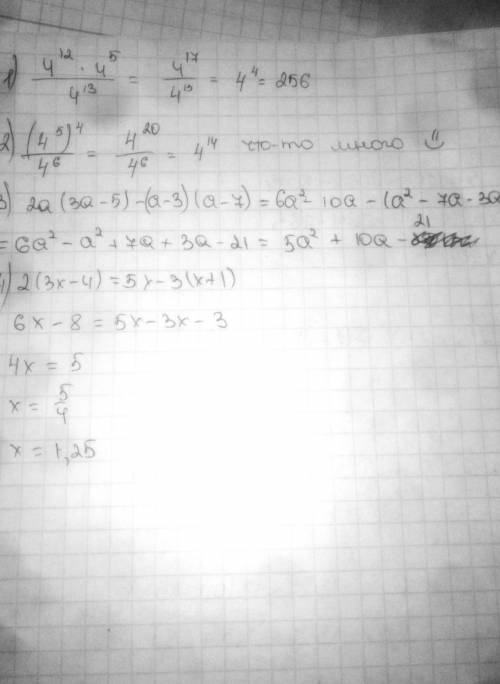 1) (4^12 · 4^5)/4^13 = 4^17/4^13 = 4^4 = 256
2) (4^5)^4/4^6 = 4^20/4^6 = 4^14 что-то много
3) 2a(3a-5)-(a-3)(a-7) = 6a^2-10a-(a^2-7a-3a
= 6a^2-a^2+7a+3a-21 = 5a^2+10a-21
4) 2(3x-4)=5x-3(x+1)
6x-8=5x-3x-3
4x=5
x=5/4
x=1,25